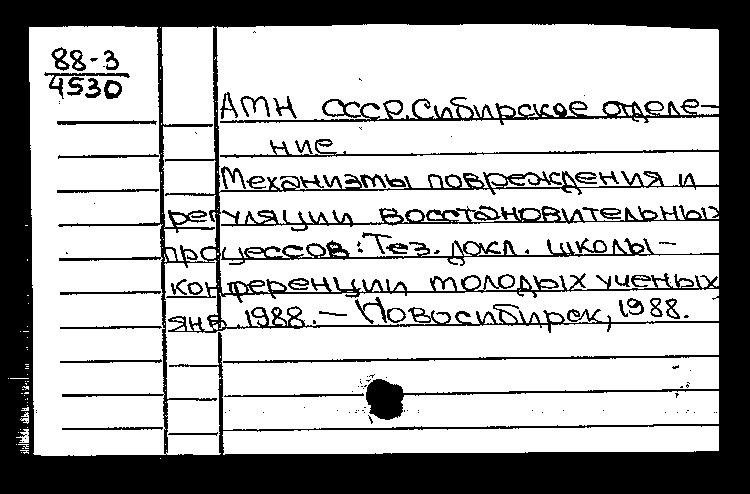 88-3
4530
АМН СССР. Сибирское отделе-
ние.
Механизмы повреждения и
регуляции восстановительных
процессов: Тез. докл. школы-
конференции молодых ученых
янв. 1988. – Новосибирск, 1988.